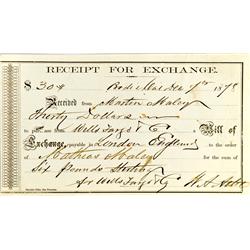 RECEIPT FOR EXCHANGE.
$ 30 Bodie Mal Dec 7th 1878
Received from Martin Maley
Thirty Dollars
in payment from Wells Fargo & Co a Bill of
Exchange, payable in London England to the order
of Mathias Maley for the sum of
Six Pounds Sterling
for Wells Fargo & Co W. A.